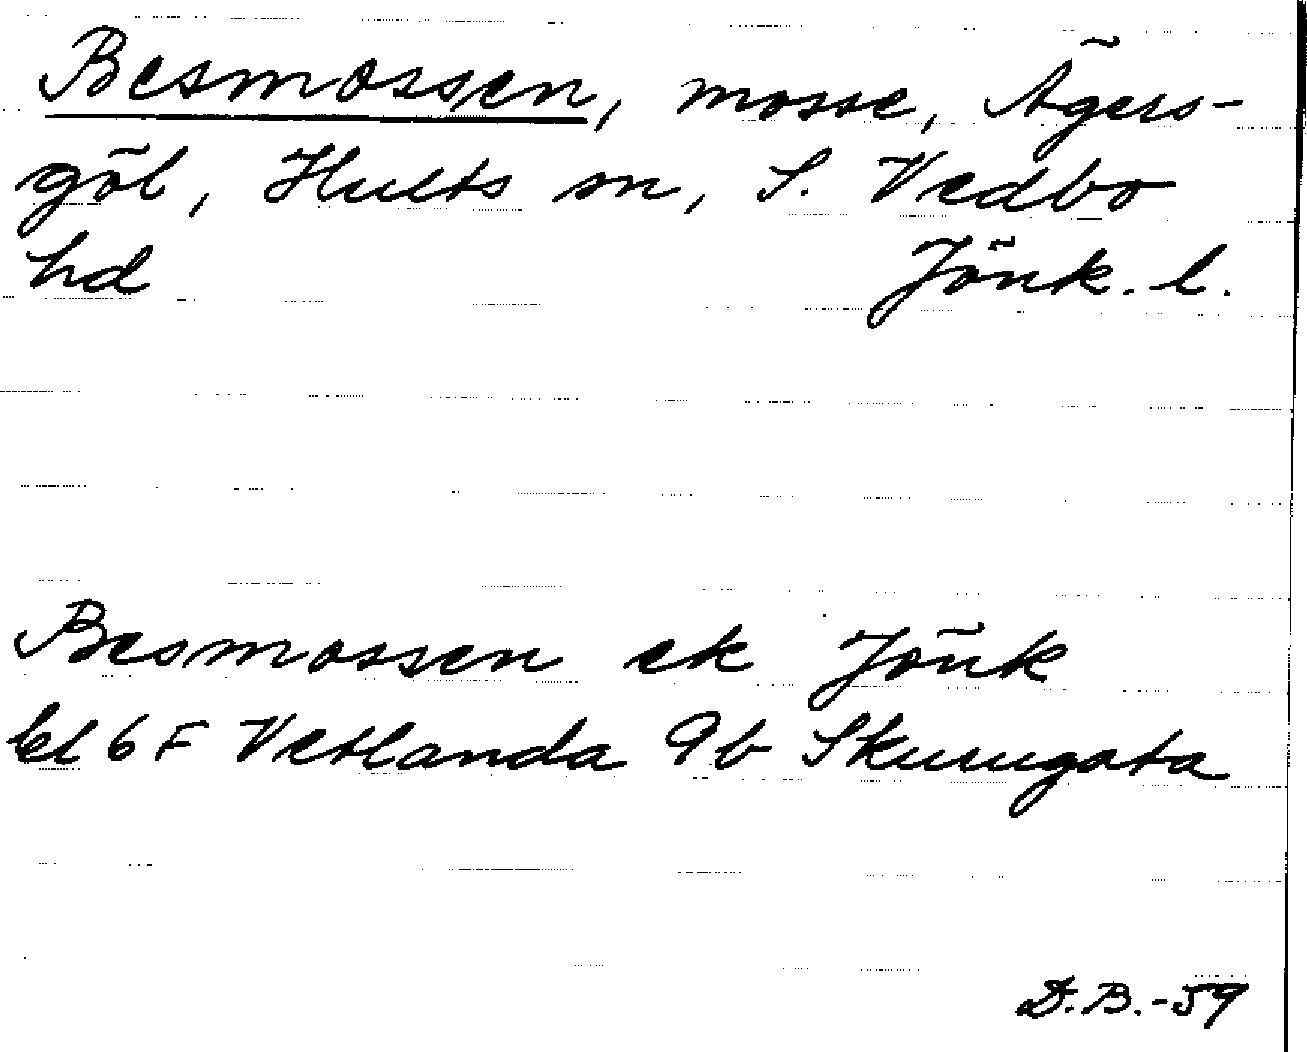 Besmossen, mosse, Ägers-
göl, Hults sn, S. Vedbo
hd Jönk. l.
Besmossen ek Jönk
bl 6 F Vetlanda 9b Skurugata
D.B.-59